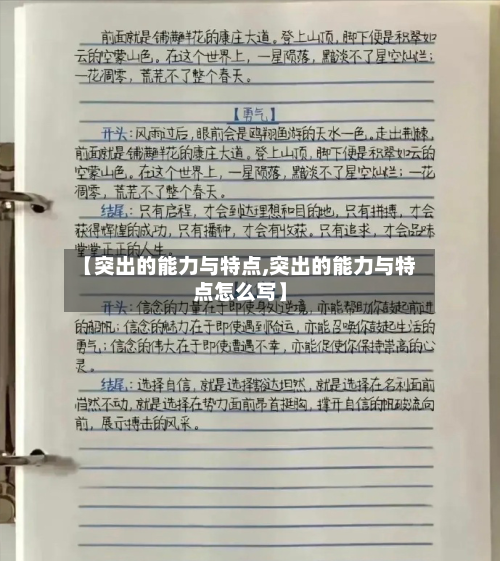 前面就是铺满鲜花的康庄大道。登上山顶，脚下便是积翠如
云的空蒙山色。在这个世界上，一星陨落，黯淡不了星空灿烂；
一花凋零，荒芜不了整个春天。
【勇气】
开头：风雨过后，眼前会是鸥翔鱼游的天水一色。走出荆棘，
前面就是铺满鲜花的康庄大道。登上山顶，脚下便是积翠如云的
空蒙山色。在这个世界上，一星陨落，黯淡不了星空灿烂；一花
凋零，荒芜不了整个春天。
结尾：只有启程，才会到达理想和目的地，只有拼搏，才会
获得辉煌的成功，只有播种，才会有收获。只有追求，才会品味
堂堂正正的人生。
【突出的能力与特点,突出的能力与特
点怎么写】
开头：信念的力量在于即使身处逆境，亦能帮助你鼓起前进
的船帆；信念的魅力在于即使遇到险运，亦能召唤你鼓起生活的
勇气；信念的伟大在于即使遭遇不幸，亦能促使你保持崇高的心
灵。
结尾：选择自信，就是选择豁达坦然，就是选择在名利面前
岿然不动，就是选择在势力面前昂首挺胸，撑开自信的帆破流向
前，展示搏击的风采。